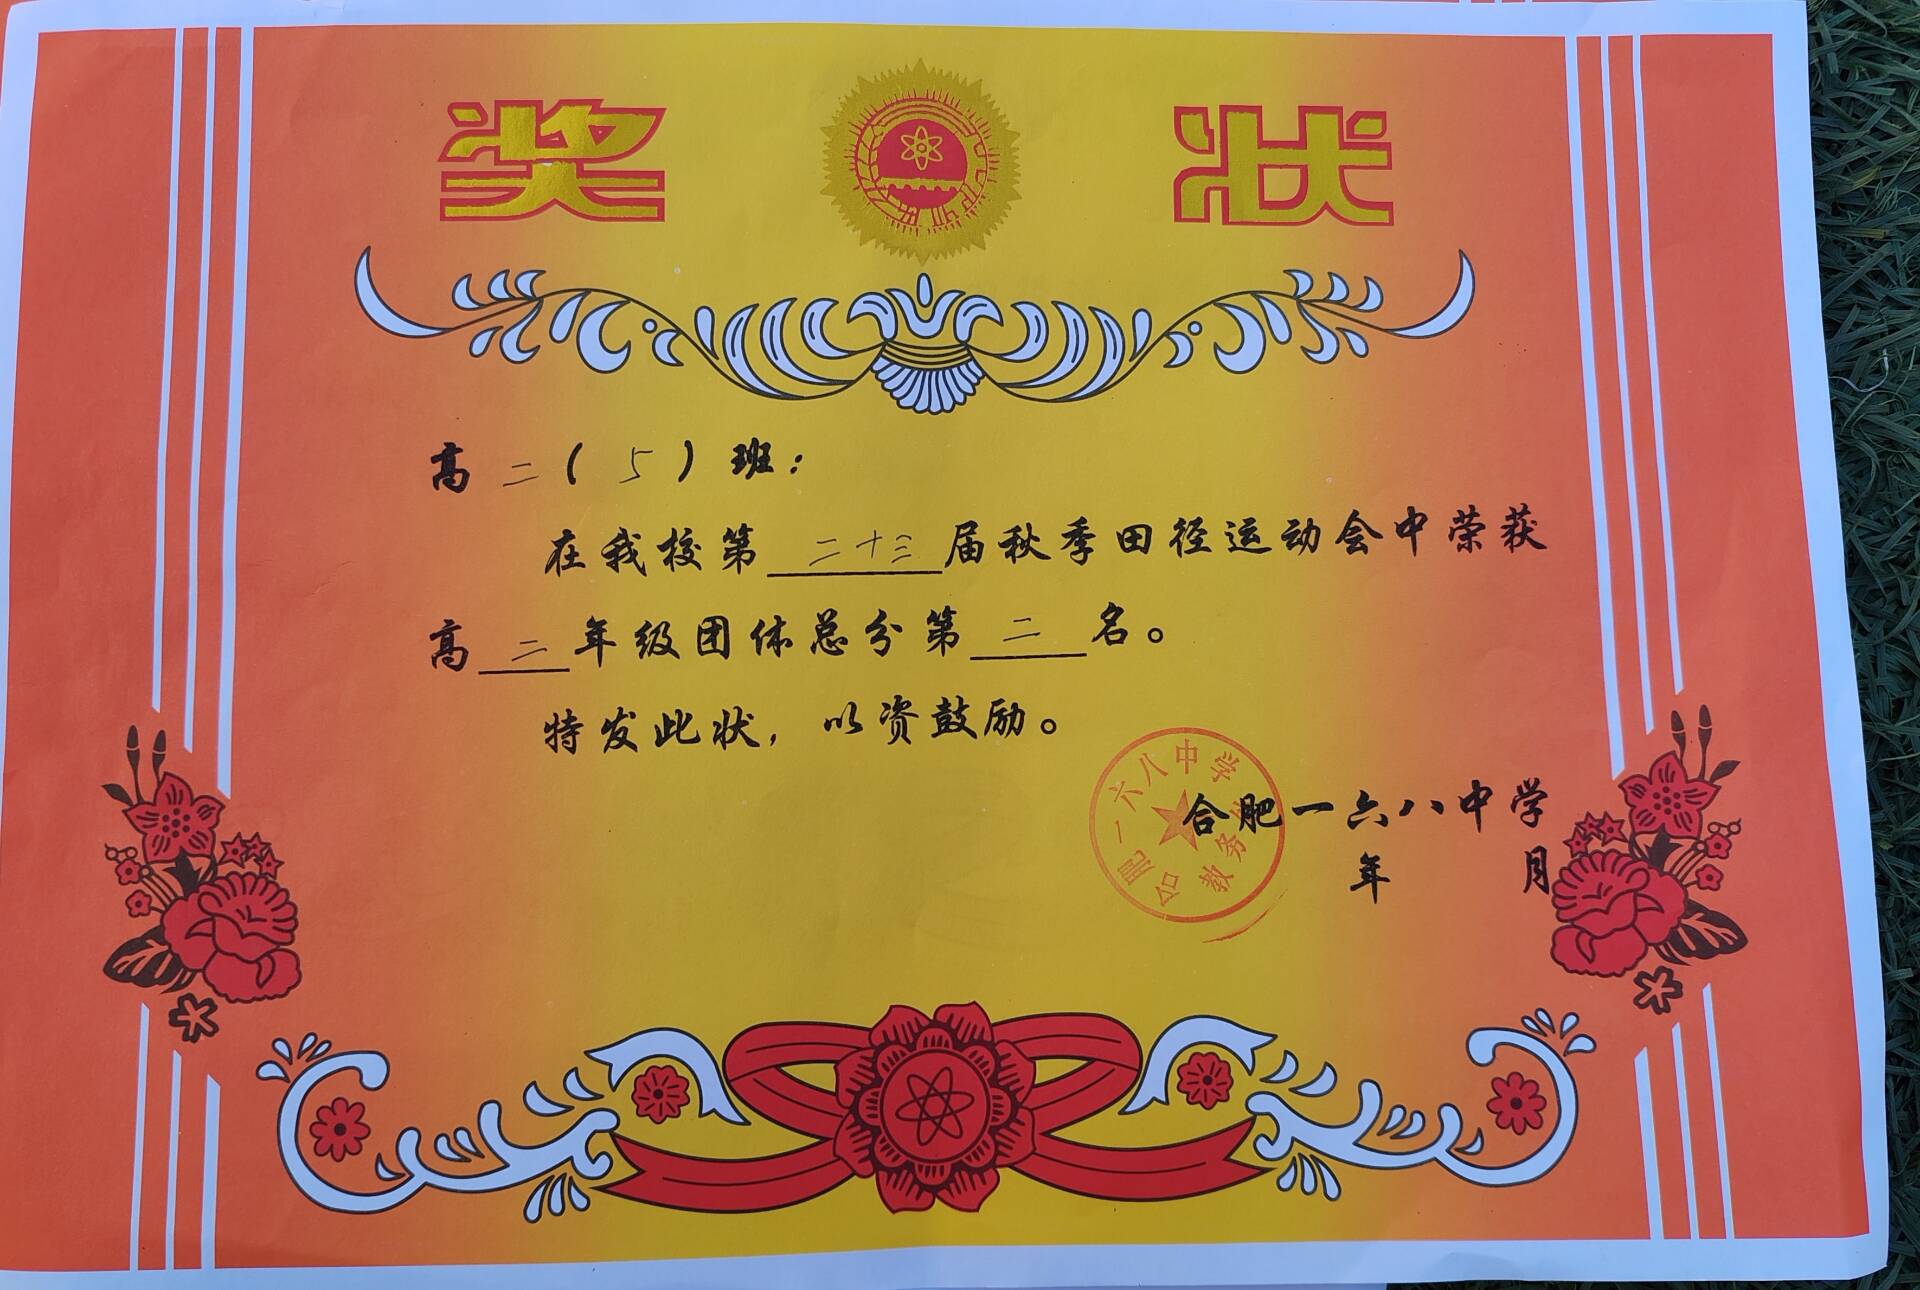 奖状
高二(5)班:
在我校第二十三届秋季田径运动会中荣获
高二年级团体总分第二名。
特发此状,以资鼓励。
合肥一六八中学
年 月
合肥一六八中学
教务处